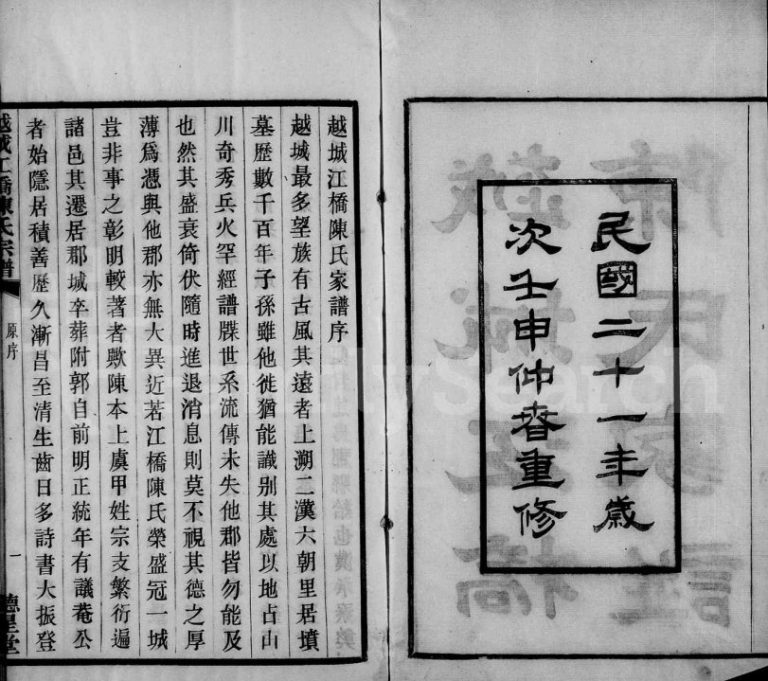 民國二十一年歲
次壬申仲春重修
越城江橋陳氏家譜序
越城最多望族有古風其遠者上溯二漢六朝里居墳
墓歷數千百年子孫雖他徙猶能識别其處以地占山
川奇秀兵火罕經譜牒世系流傳未失他郡皆勿能及
也然其盛衰倚伏隨時進退消息則莫不視其德之厚
薄爲憑與他郡亦無大異近若江橋陳氏榮盛冠一城
豈非事之彰明較著者歟陳本上虞甲姓宗支繁衍遍
諸邑其遷居郡城卒葬附郭自前明正統年有議菴公
者始隱居積善歷久漸昌至清生齒日多詩書大振登
越城江橋陳氏宗譜
原序
一
德星堂
FamilySearch